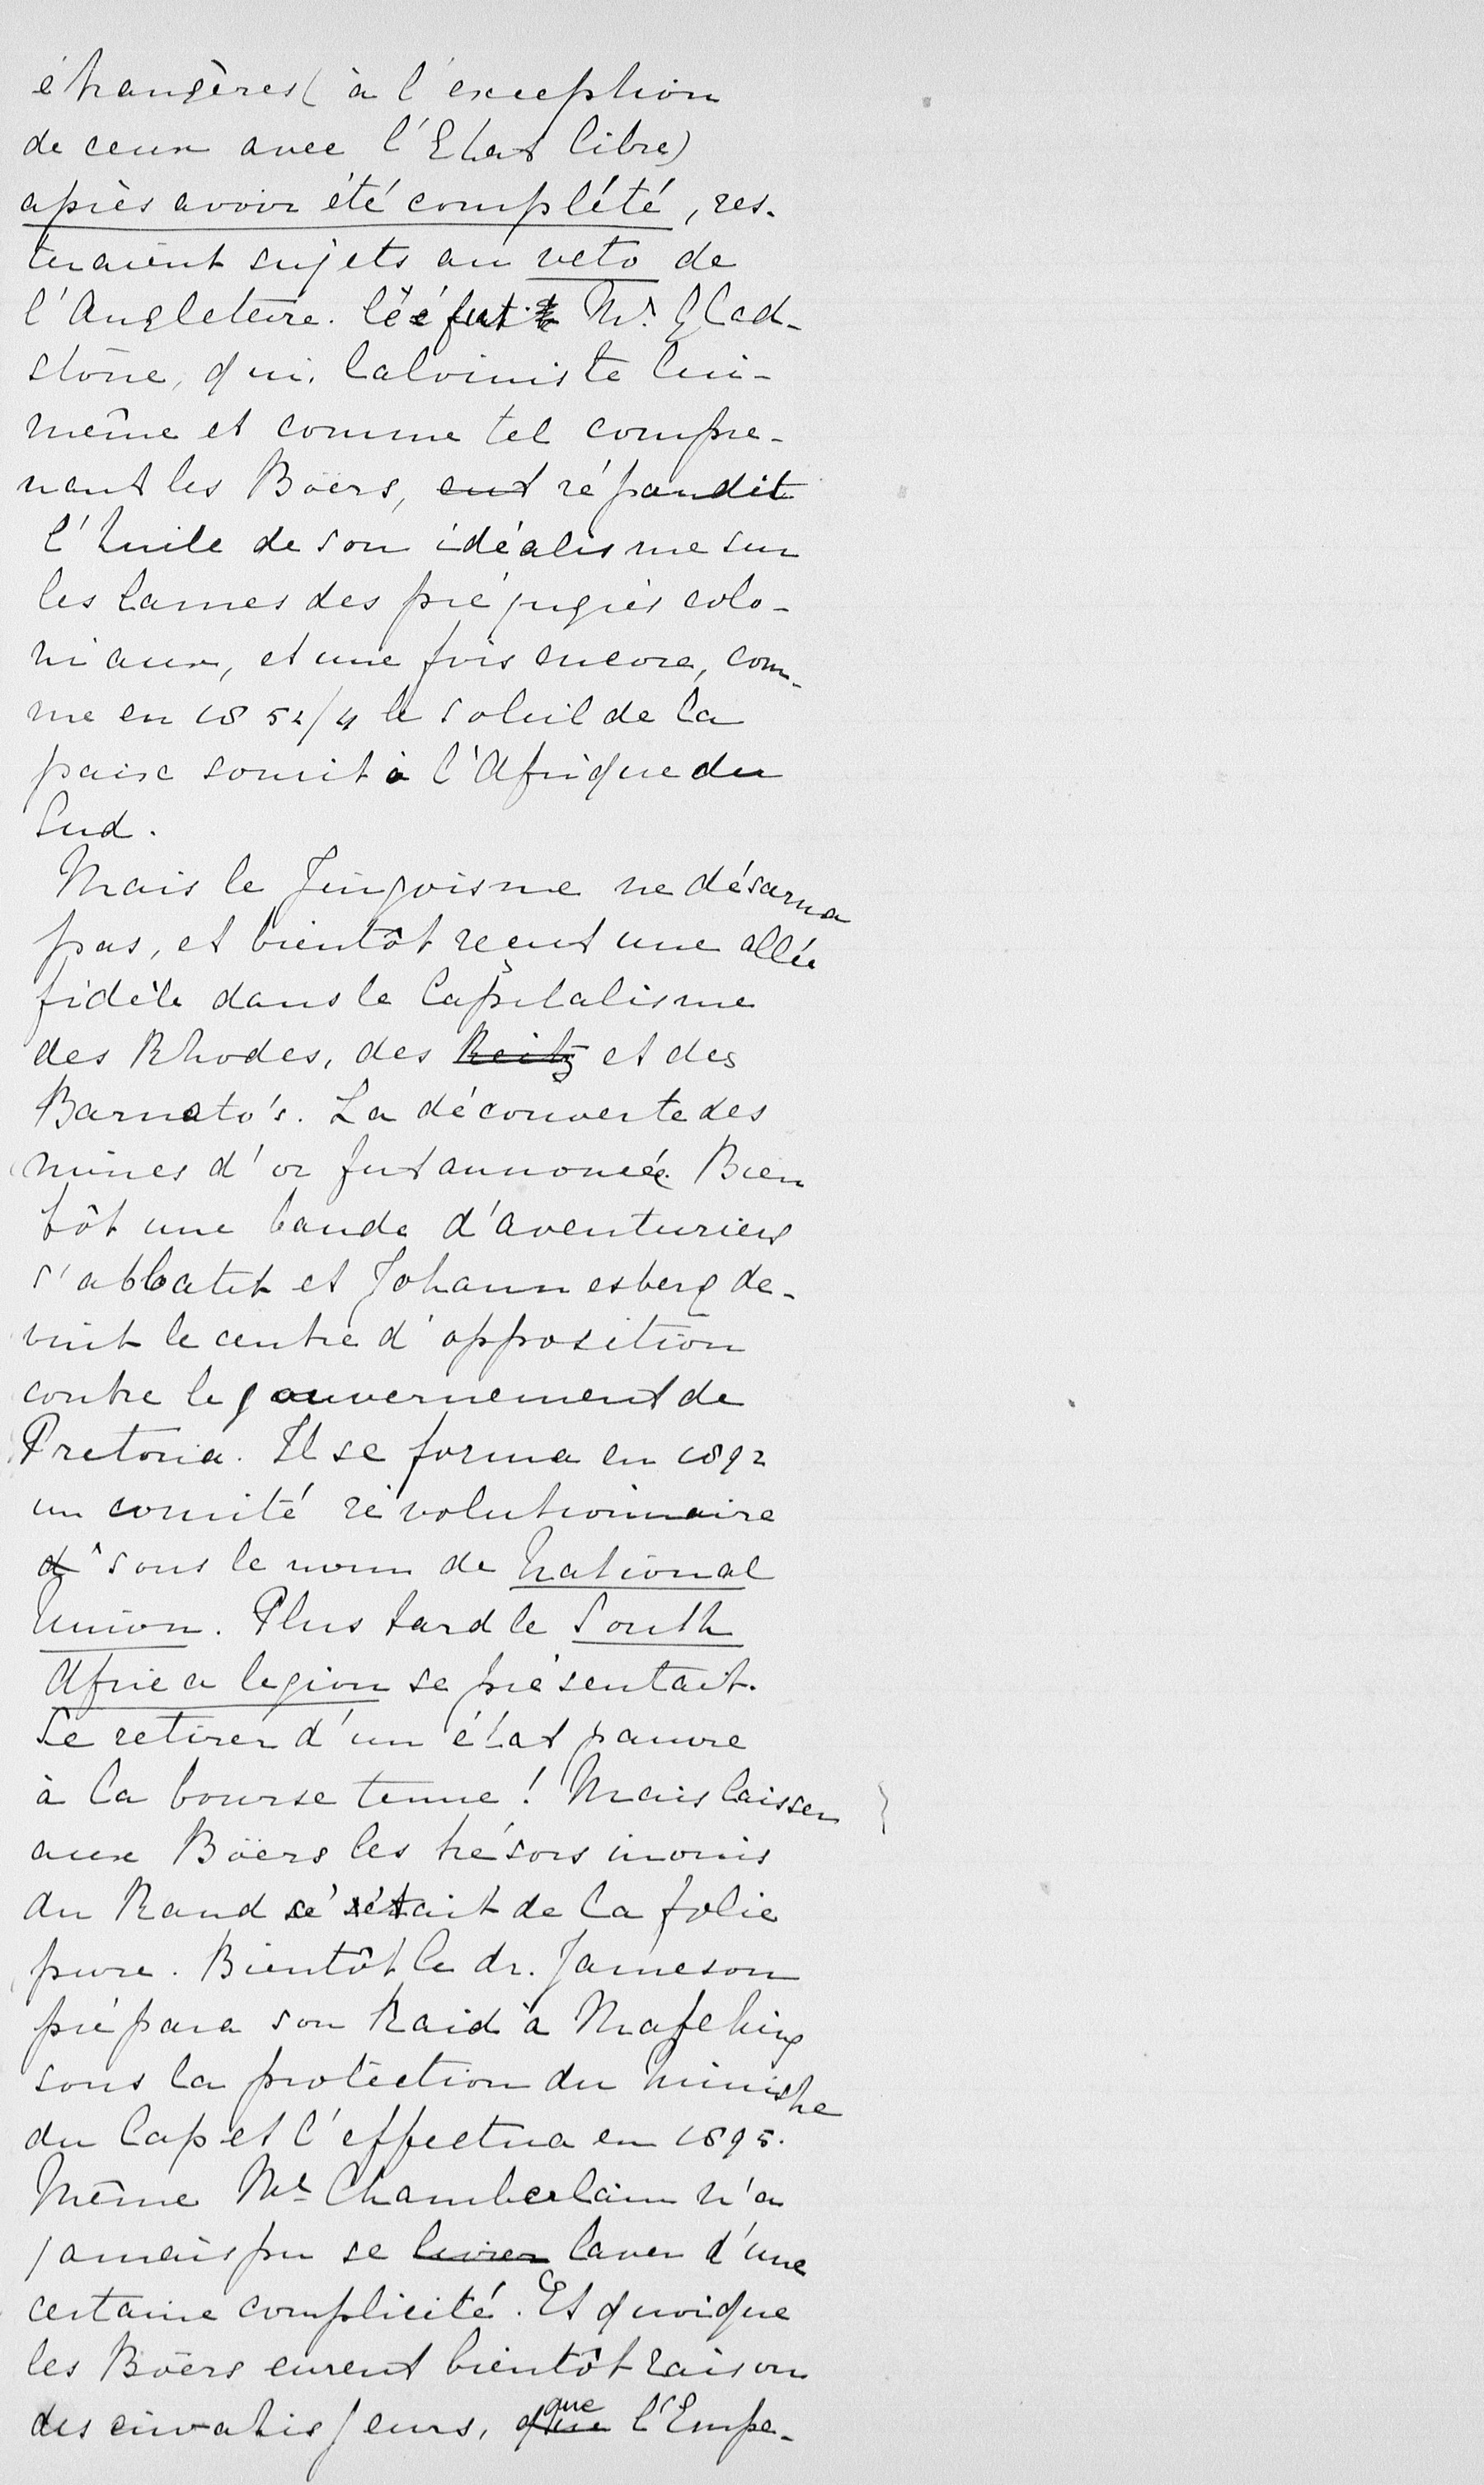 étrangères (à l'exception
de ceux avec l'Etat libre)
après avoir été complété, res-
teraient sujets au veto de
l'Angleterre. Ce fut Mr. Glad-
stone, qui, Calviniste lui-
même et comme tel compre-
nant les Boërs, eut répandit
l'huile de son idéalisme sur
les lames des préjugiés colo-
niaux, et une fois encore, com-
me en 1852/4 le soleil de la
paix sourit à l'Afrique du
Sud.
Mais le Jingoisme ne désarma
pas, et bientôt reçut une alliée
fidèle dans le Capitalisme
des Rhodes, des Beitz et des
Barnato's. La découverte des
mines d'or fut annoncée. Bien
tôt une bande d'aventuriers
s'abbatit et Johannesberg de-
vint le centre d'opposition
contre le gouvernement de
Pretoria. Il se forma en 1892
un comité révolutionnaire
sous le nom de National
Union. Plus tard le South
Africa legion se présentait.
Se retirer d'un état pauvre
à la bourse tenue! Mais laisser
aux Boërs les trésors inouis
du Rand c'était de la folie
pure. Bientôt le dr. Jameson
prépara son Raid à Mafeking
sous la protection du ministre
du Cap et l'effectua en 1895.
Même Mr Chamberlain n'a
jamais pu se livrer laver d'une
certaine complicité. Et quoique
les Boërs eurent bientôt raison
des envahisseurs, que que l'Empe-